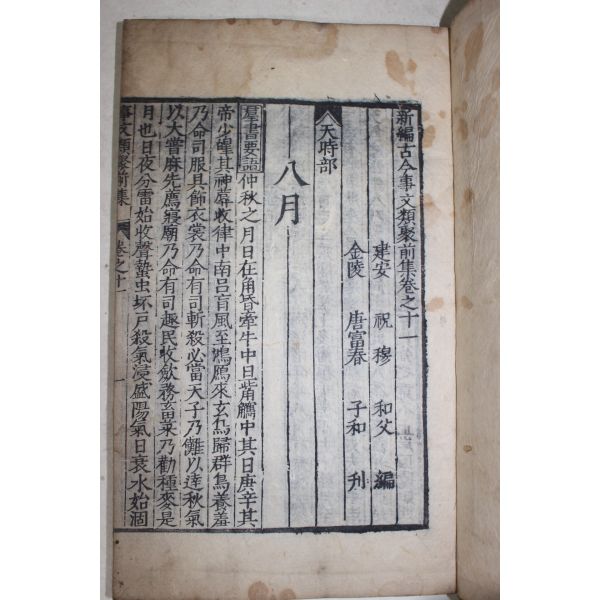 新編古今事文類聚前集卷之十一
建安 祝穆 和父 編
金陵 唐富春 子和 刋
天時部
八月
羣書要語 仲秋之月日在角昏牽牛中旦觜觿中其日庚辛其
帝少皥其神蓐收律中南呂盲風至鴻鴈來玄鳥歸群鳥養羞
乃命司服具飾衣裳乃命有司斬殺必當天子乃儺以達秋氣
以犬嘗麻先薦寢廟乃命有司趣民收歛務畜菜乃勸種麥是
月也日夜分雷始收聲蟄虫坏戶殺氣浸盛陽氣日衰水始涸
事文類聚前集 卷之十一 一